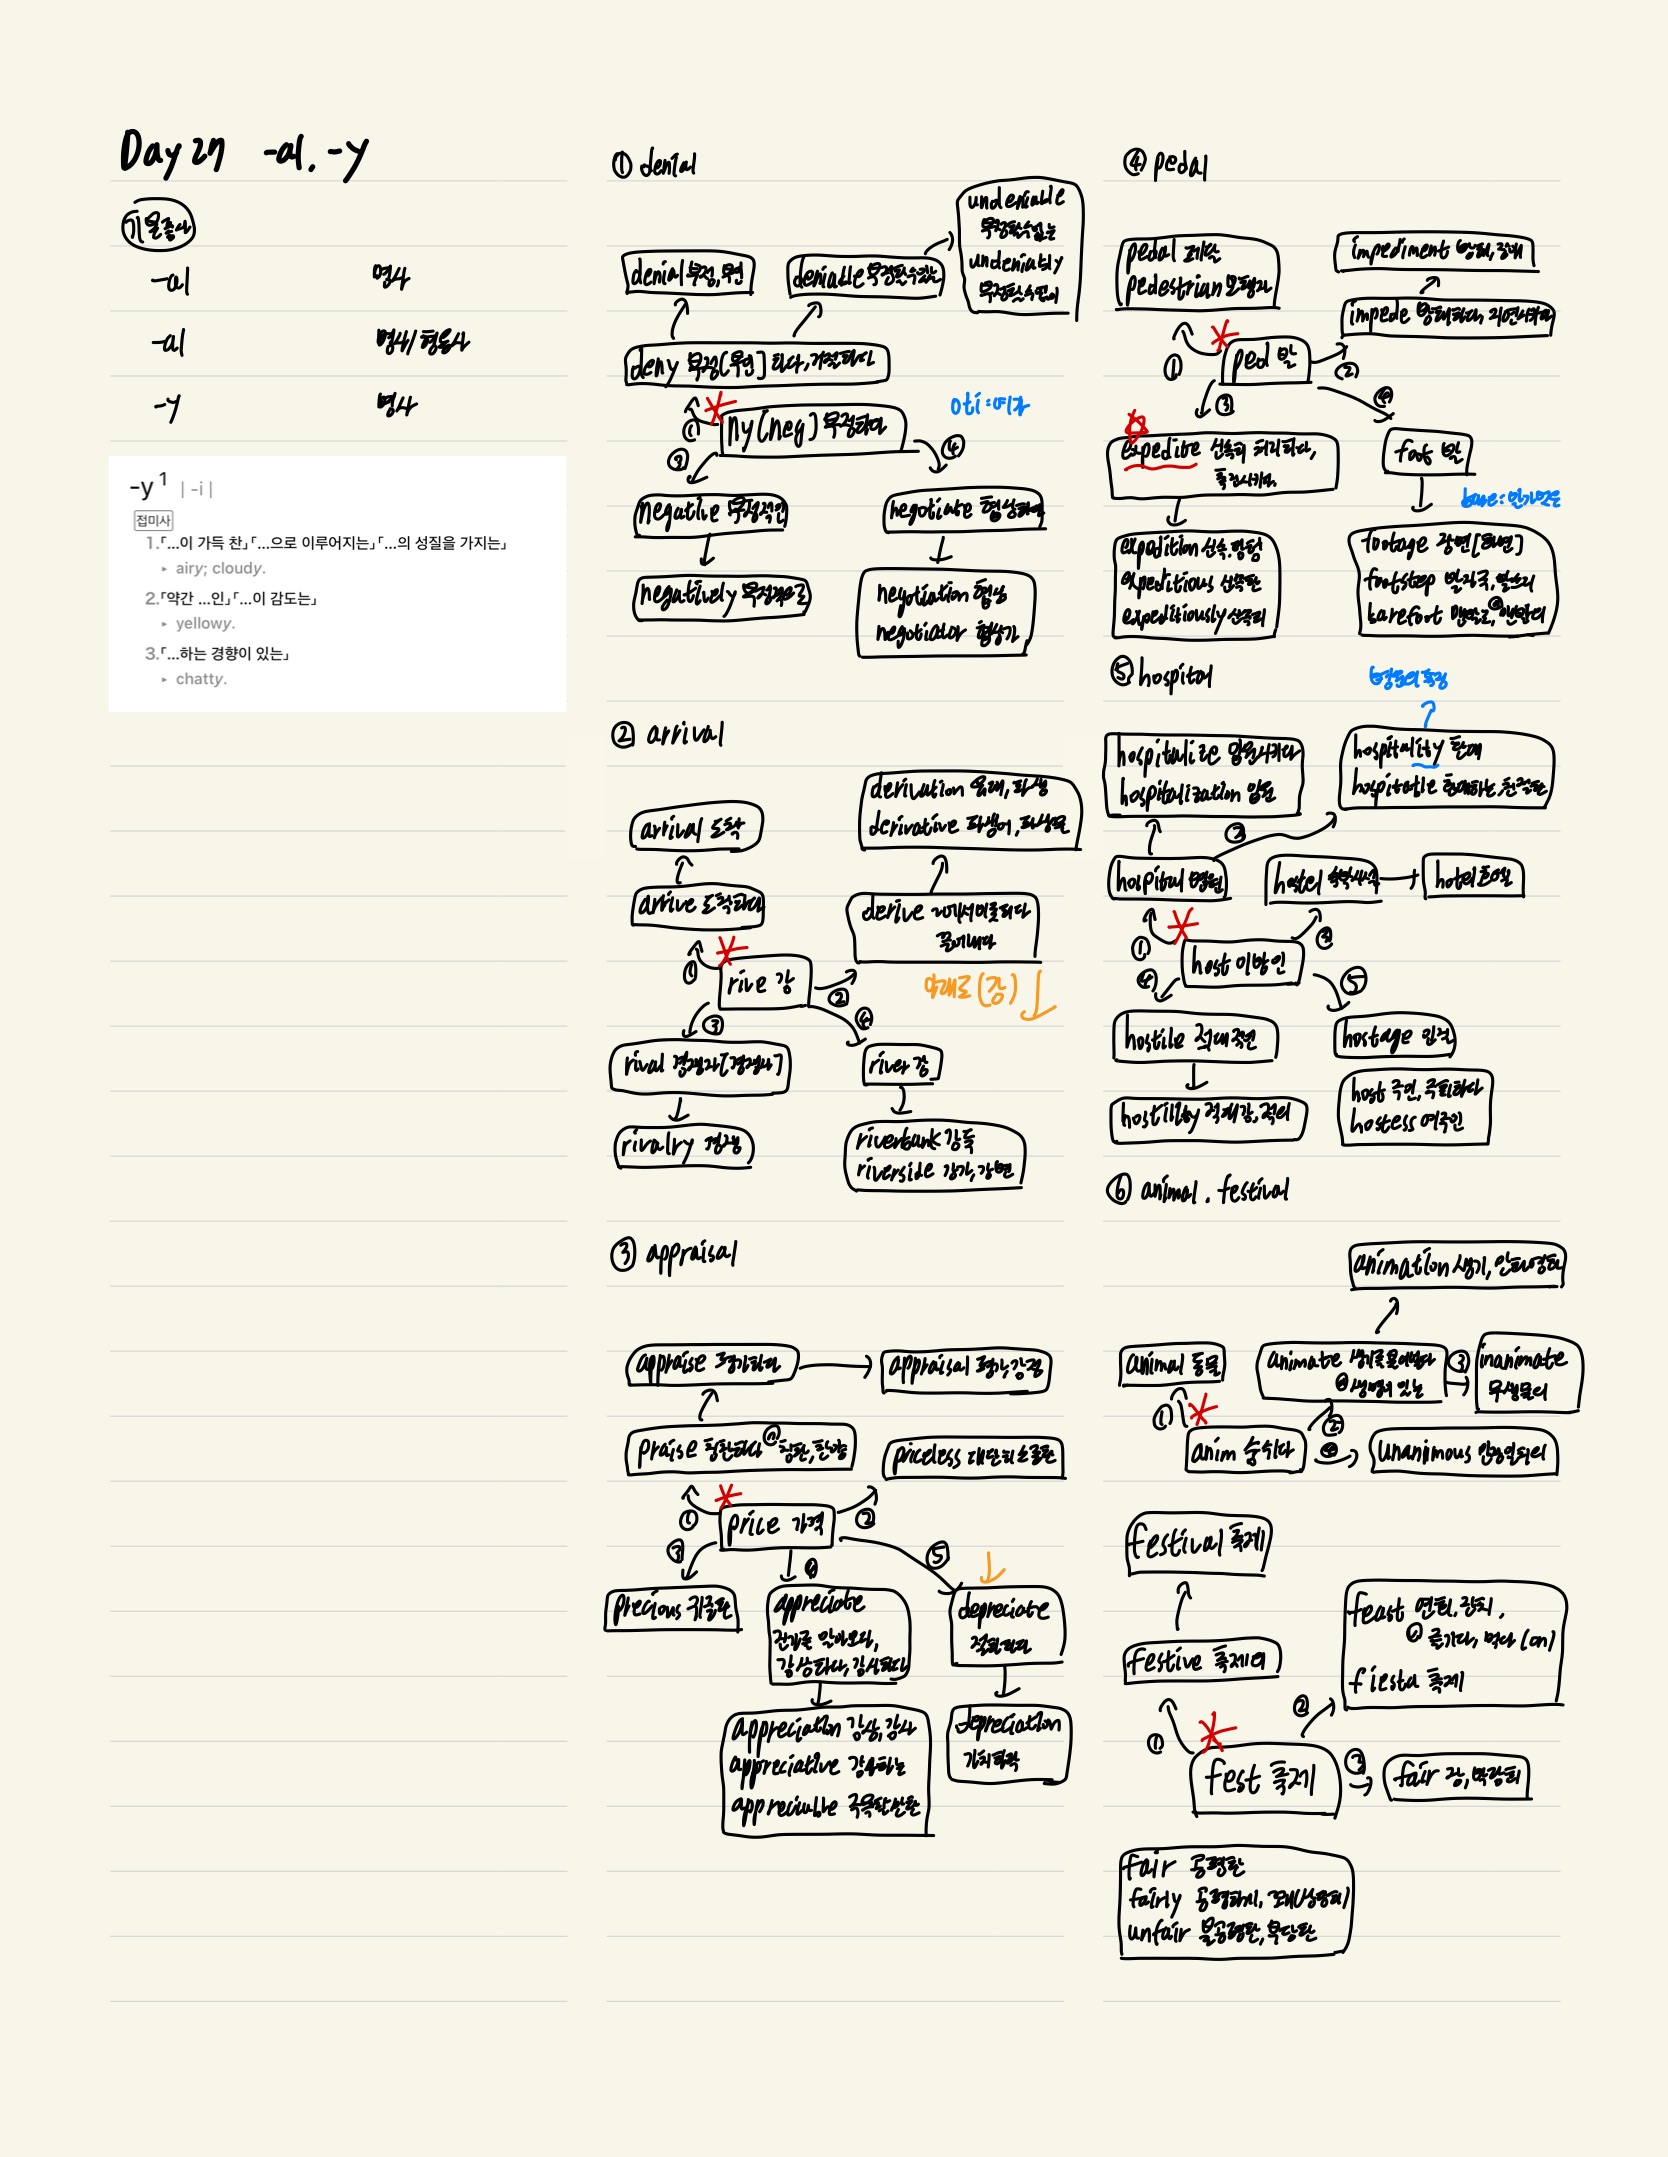 Day 27 -al. -y
기본접사
-al 명사
-al 명사/형용사
-y 명사
-y¹ | -i |
접미사
1.「...이 가득 찬」「...으로 이루어지는」「...의 성질을 가지는」
▸ airy; cloudy.
2.「약간 ...인」「...이 감도는」
▸ yellowy.
3.「...하는 경향이 있는」
▸ chatty.
① denial
undeniable
부정할수없는
undeniably
부정할수없이
denial 부정,부인
deniable 부정할수있는
deny 부정[부인]하다,거절하다
① ny(neg) 부정하다
oti:여가
③
④
negative 부정적인
negotiate 협상하다
negatively 부정적으로
negotiation 협상
negotiator 협상가
② arrival
derivation 유래,파생
derivative 파생어,파생물
arrival 도착
arrive 도착하다
derive 에서비롯되다
끌어내다
① rive 강 ②
아래로(강)
③
④
rival 경쟁자[경쟁사]
river 강
rivalry 경쟁
riverbank 강둑
riverside 강가,강변
③ appraisal
appraise 평가하다
appraisal 평가,감정
praise 칭찬하다 ⓝ칭찬,찬양
priceless 대단히소중한
① price 가격 ②
③
④
⑤
precious 귀중한
appreciate
진가를 알아보다,
감상하다,감사하다
depreciate
절하하다
appreciation 감상,감사
appreciative 감사하는
appreciable 주목할만한
depreciation
가치하락
④ pedal
pedal 페달
pedestrian 보행자
impediment 방해,장애
impede 방해하다,지연시키다
① ped 발 ②
③
④
expedite 신속히 처리하다,
촉진시키다
foot 발
bare:안가면
expedition 신속,탐험
expeditious 신속한
expeditiously 신속히
footage 장면[화면]
footstep 발자국,발소리
barefoot 맨발로,ⓐ맨발의
⑤ hospital
병원의 특징
hospitalize 입원시키다
hospitalization 입원
hospitality 환대
hospitable 환대하는,친절한
②
hospital 병원
hostel
hotel 호텔
① host 이방인 ③
④
⑤
hostile 적대적인
hostage 인질
hostility 적대감,적의
host 주인,주최하다
hostess 여주인
⑥ animal . festival
animation 생기,만화영화
animal 동물
animate 생기를불어넣다
ⓐ생명이 있는
③
inanimate
무생물의
①
②
anim 숨쉬다
④
unanimous 만장일치의
festival 축제
feast 연회,잔치,
ⓥ 즐기다, 먹다 (on)
fiesta 축제
festive 축제의
①
②
fest 축제
③
fair 장,박람회
fair 공평한
fairly 공평하게, 꽤(상당히)
unfair 불공평한,부당한